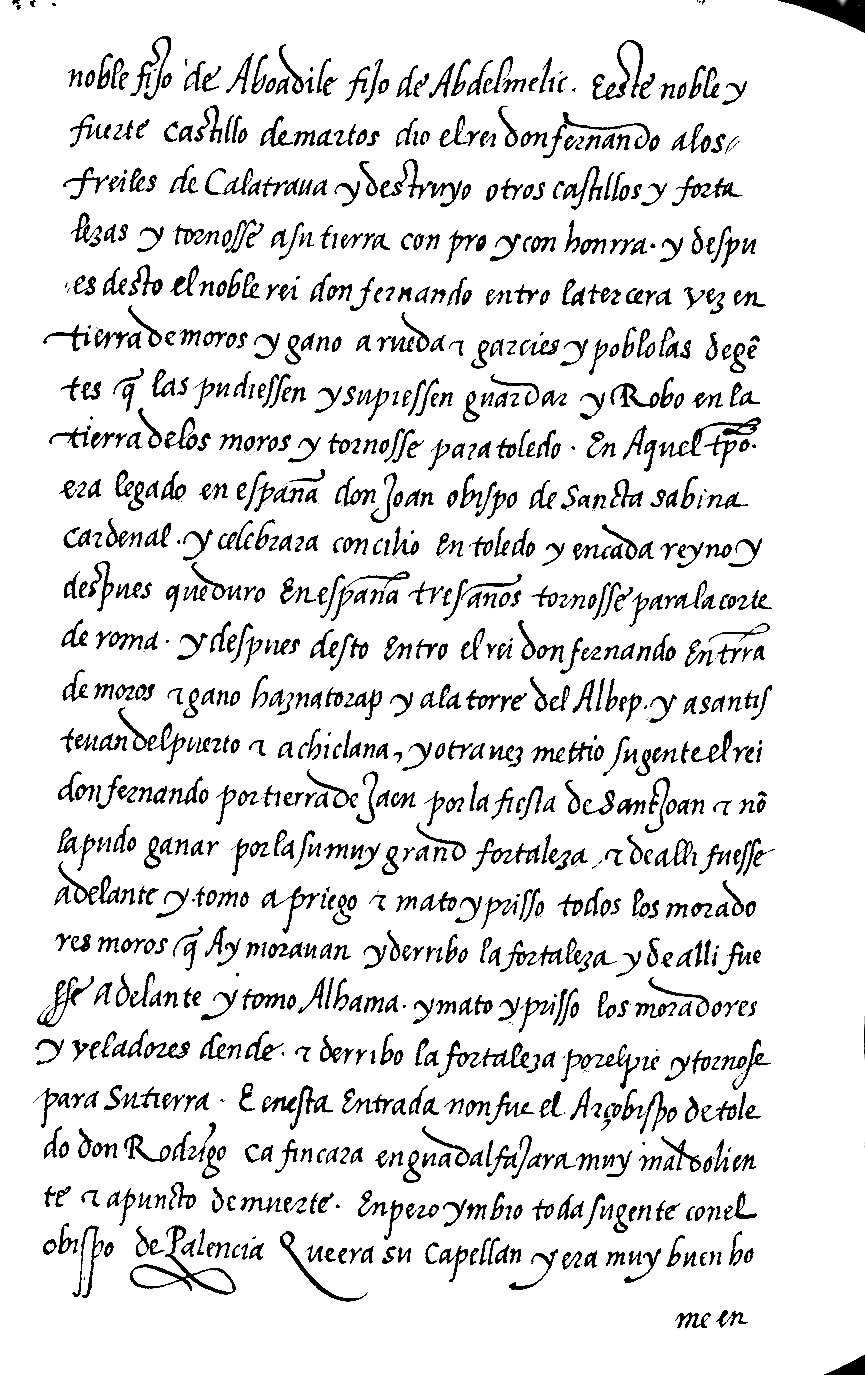 noble fijo de Aboadile fijo de Abdelmelic. E este noble y
fuerte castillo de martos dio el rei don fernando a los
freiles de Calatraua y destruyo otros castillos y forta
lezas y tornosse a su tierra con pro y con honrra. y despu
es desto el noble rei don fernando entro la tercera vez en
tierra de moros y gano a rueda τ garcies y poblolas de gẽ
tes q̃ las pudiessen y supiessen guardar y Robo en la
tierra de los moros y tornosse para toledo. En Aquel tpõ.
era legado en españa don Joan obispo de Sancta sabina
cardenal. y celebrara concilio en toledo y en cada reyno y
despues que duro En españa tres años tornosse para la corte
de roma. y despues desto Entro el rei don fernando En trrã
de moros τ gano haznatorap y a la torre del Albep. y a santis
teuan del puerto τ a chiclana, y otra uez mettio su gente el rei
don fernando por tierra de Jaen por la fiesta de Sant Joan τ nõ
la pudo ganar por la su muy grand fortaleza, τ de alli fuesse
adelante y tomo a priego τ mato y prisso todos los morado
res moros q̃ Ay morauan y derribo la fortaleza y de alli fue
sse Adelante y tomo Alhama. y mato y prisso los moradores
y veladores dende. τ derribo la fortaleza por el pie y tornose
para Su tierra. E en esta Entrada non fue el Arçobispo de tole
do don Rodrigo ca fincara en guadalfajara muy mal dolien
te τ a puncto de muerte. En pero ymbio toda su gente con el
obispo de Palencia Que era su Capellan y era muy buen ho
me en